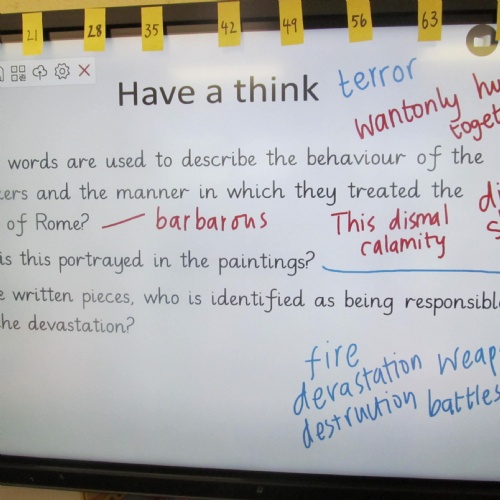 21 28 35 42 49 56 63
Have a think
terror
wantonly
words are used to describe the behaviour of the
and the manner in which they treated the
of Rome? — barbarous
This dismal
calamity
is this portrayed in the paintings?
written pieces, who is identified as being
the devastation?
fire
devastation
destruction battles